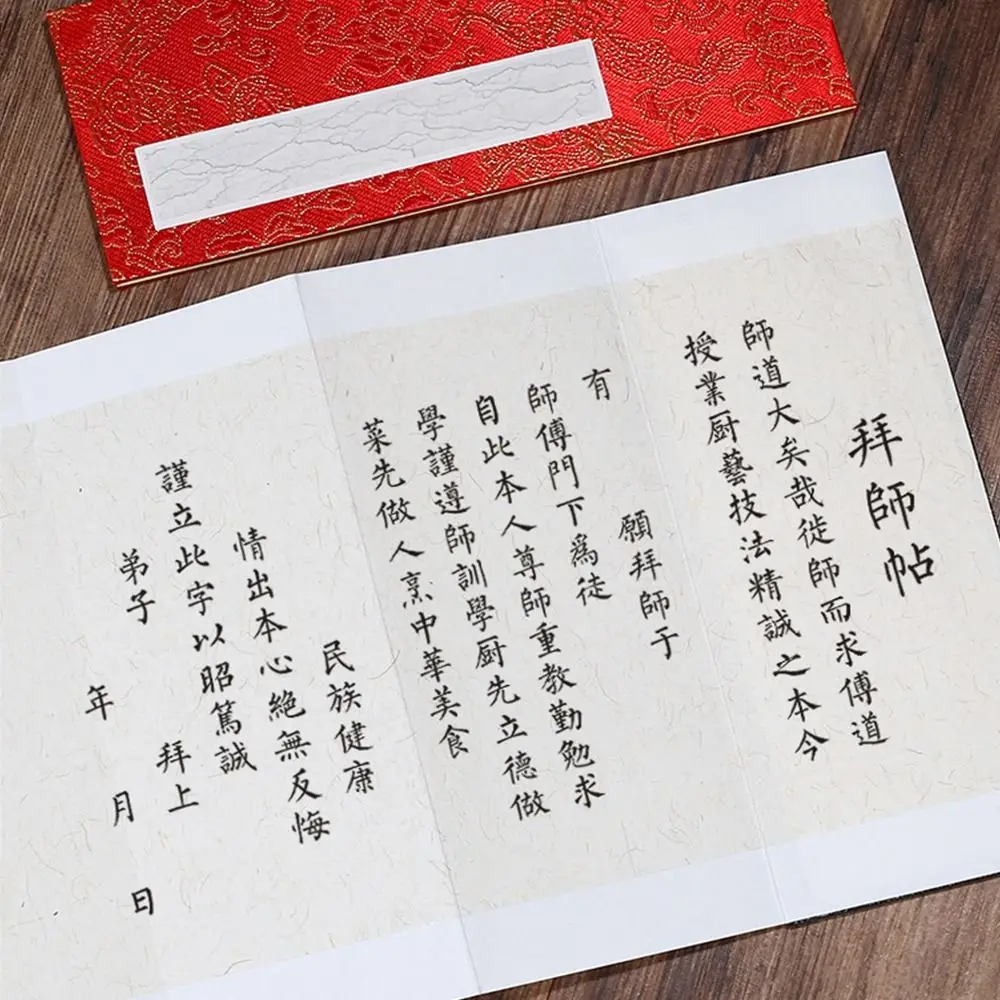 拜師帖
師道大矣哉徙師而求傅道
授業厨藝技法精誠之本今
有
願拜師于
師傅門下為徒
自此本人尊師重教勤勉求
學謹遵師訓學厨先立德做
菜先做人烹中華美食
民族健康
情出本心絶無反悔
謹立此字以昭篤誠
弟子
拜上
年
月
日